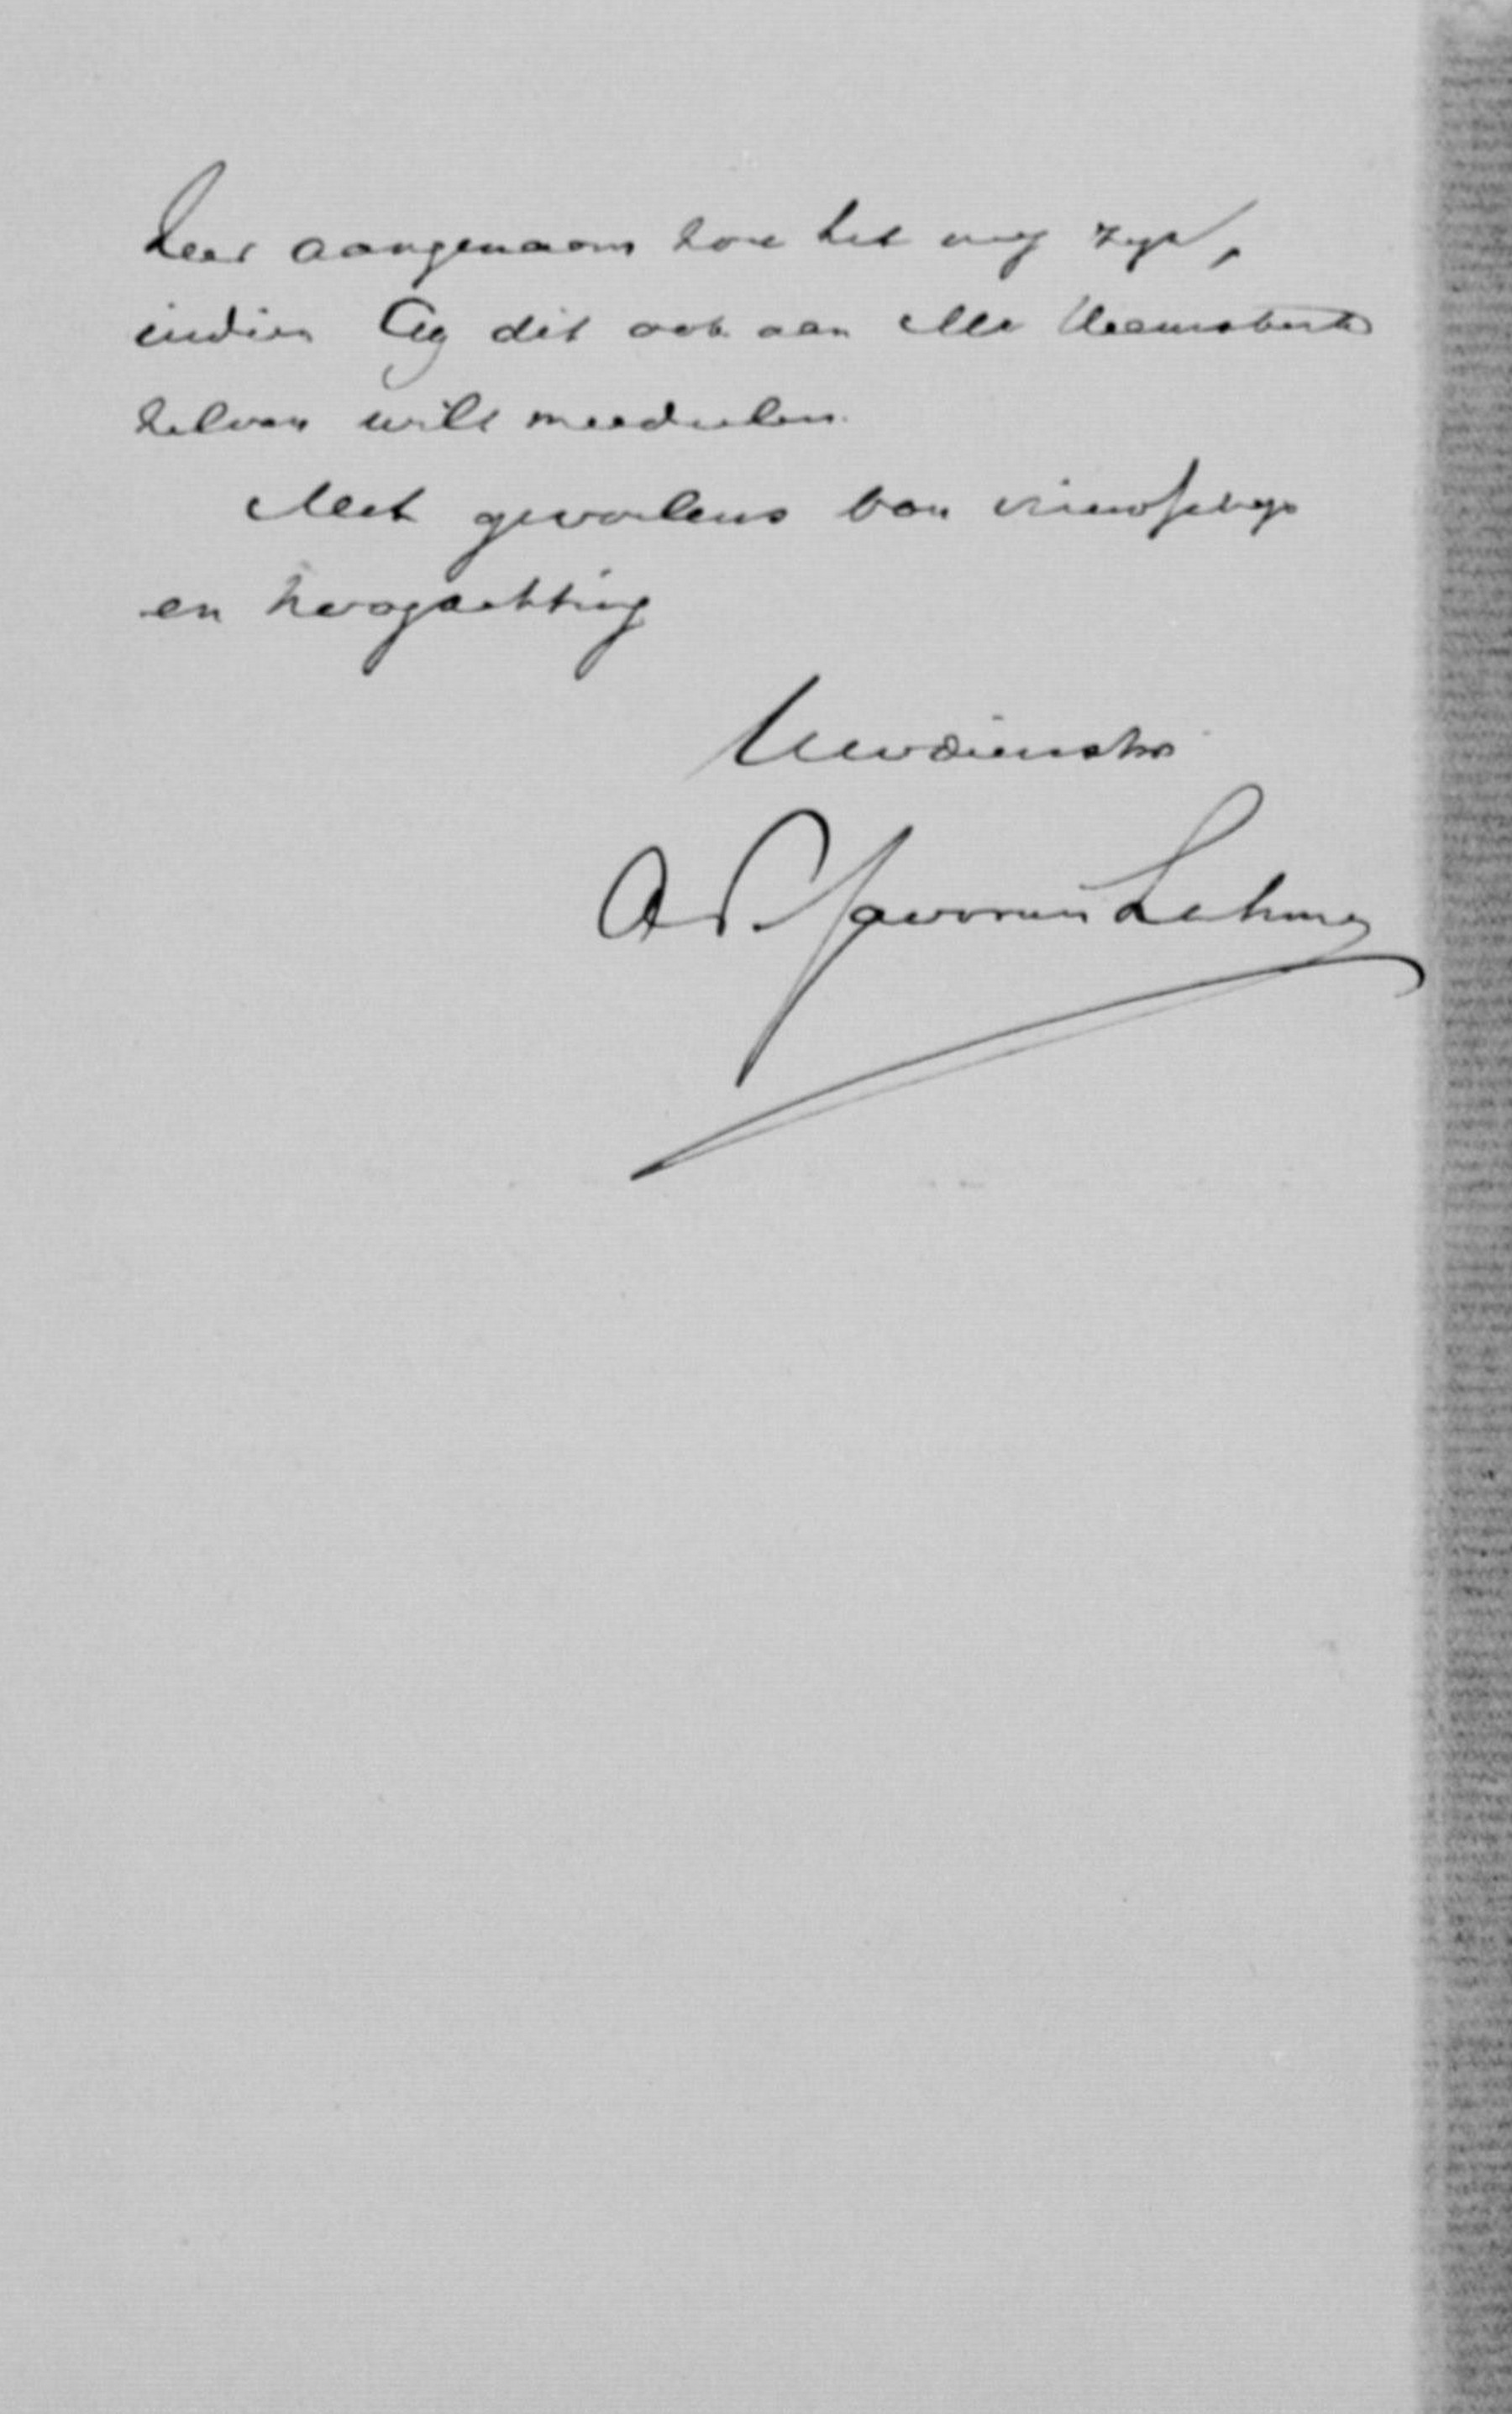 Zeer aangenaam zou het mij zijn,
indien Gij dit ook aan Mr Heemskerk
zelven wilt meedeelen.
Met gevoelens van vriendschap
en hoogachting
Uwdienstw
A F de Savornin Lohman